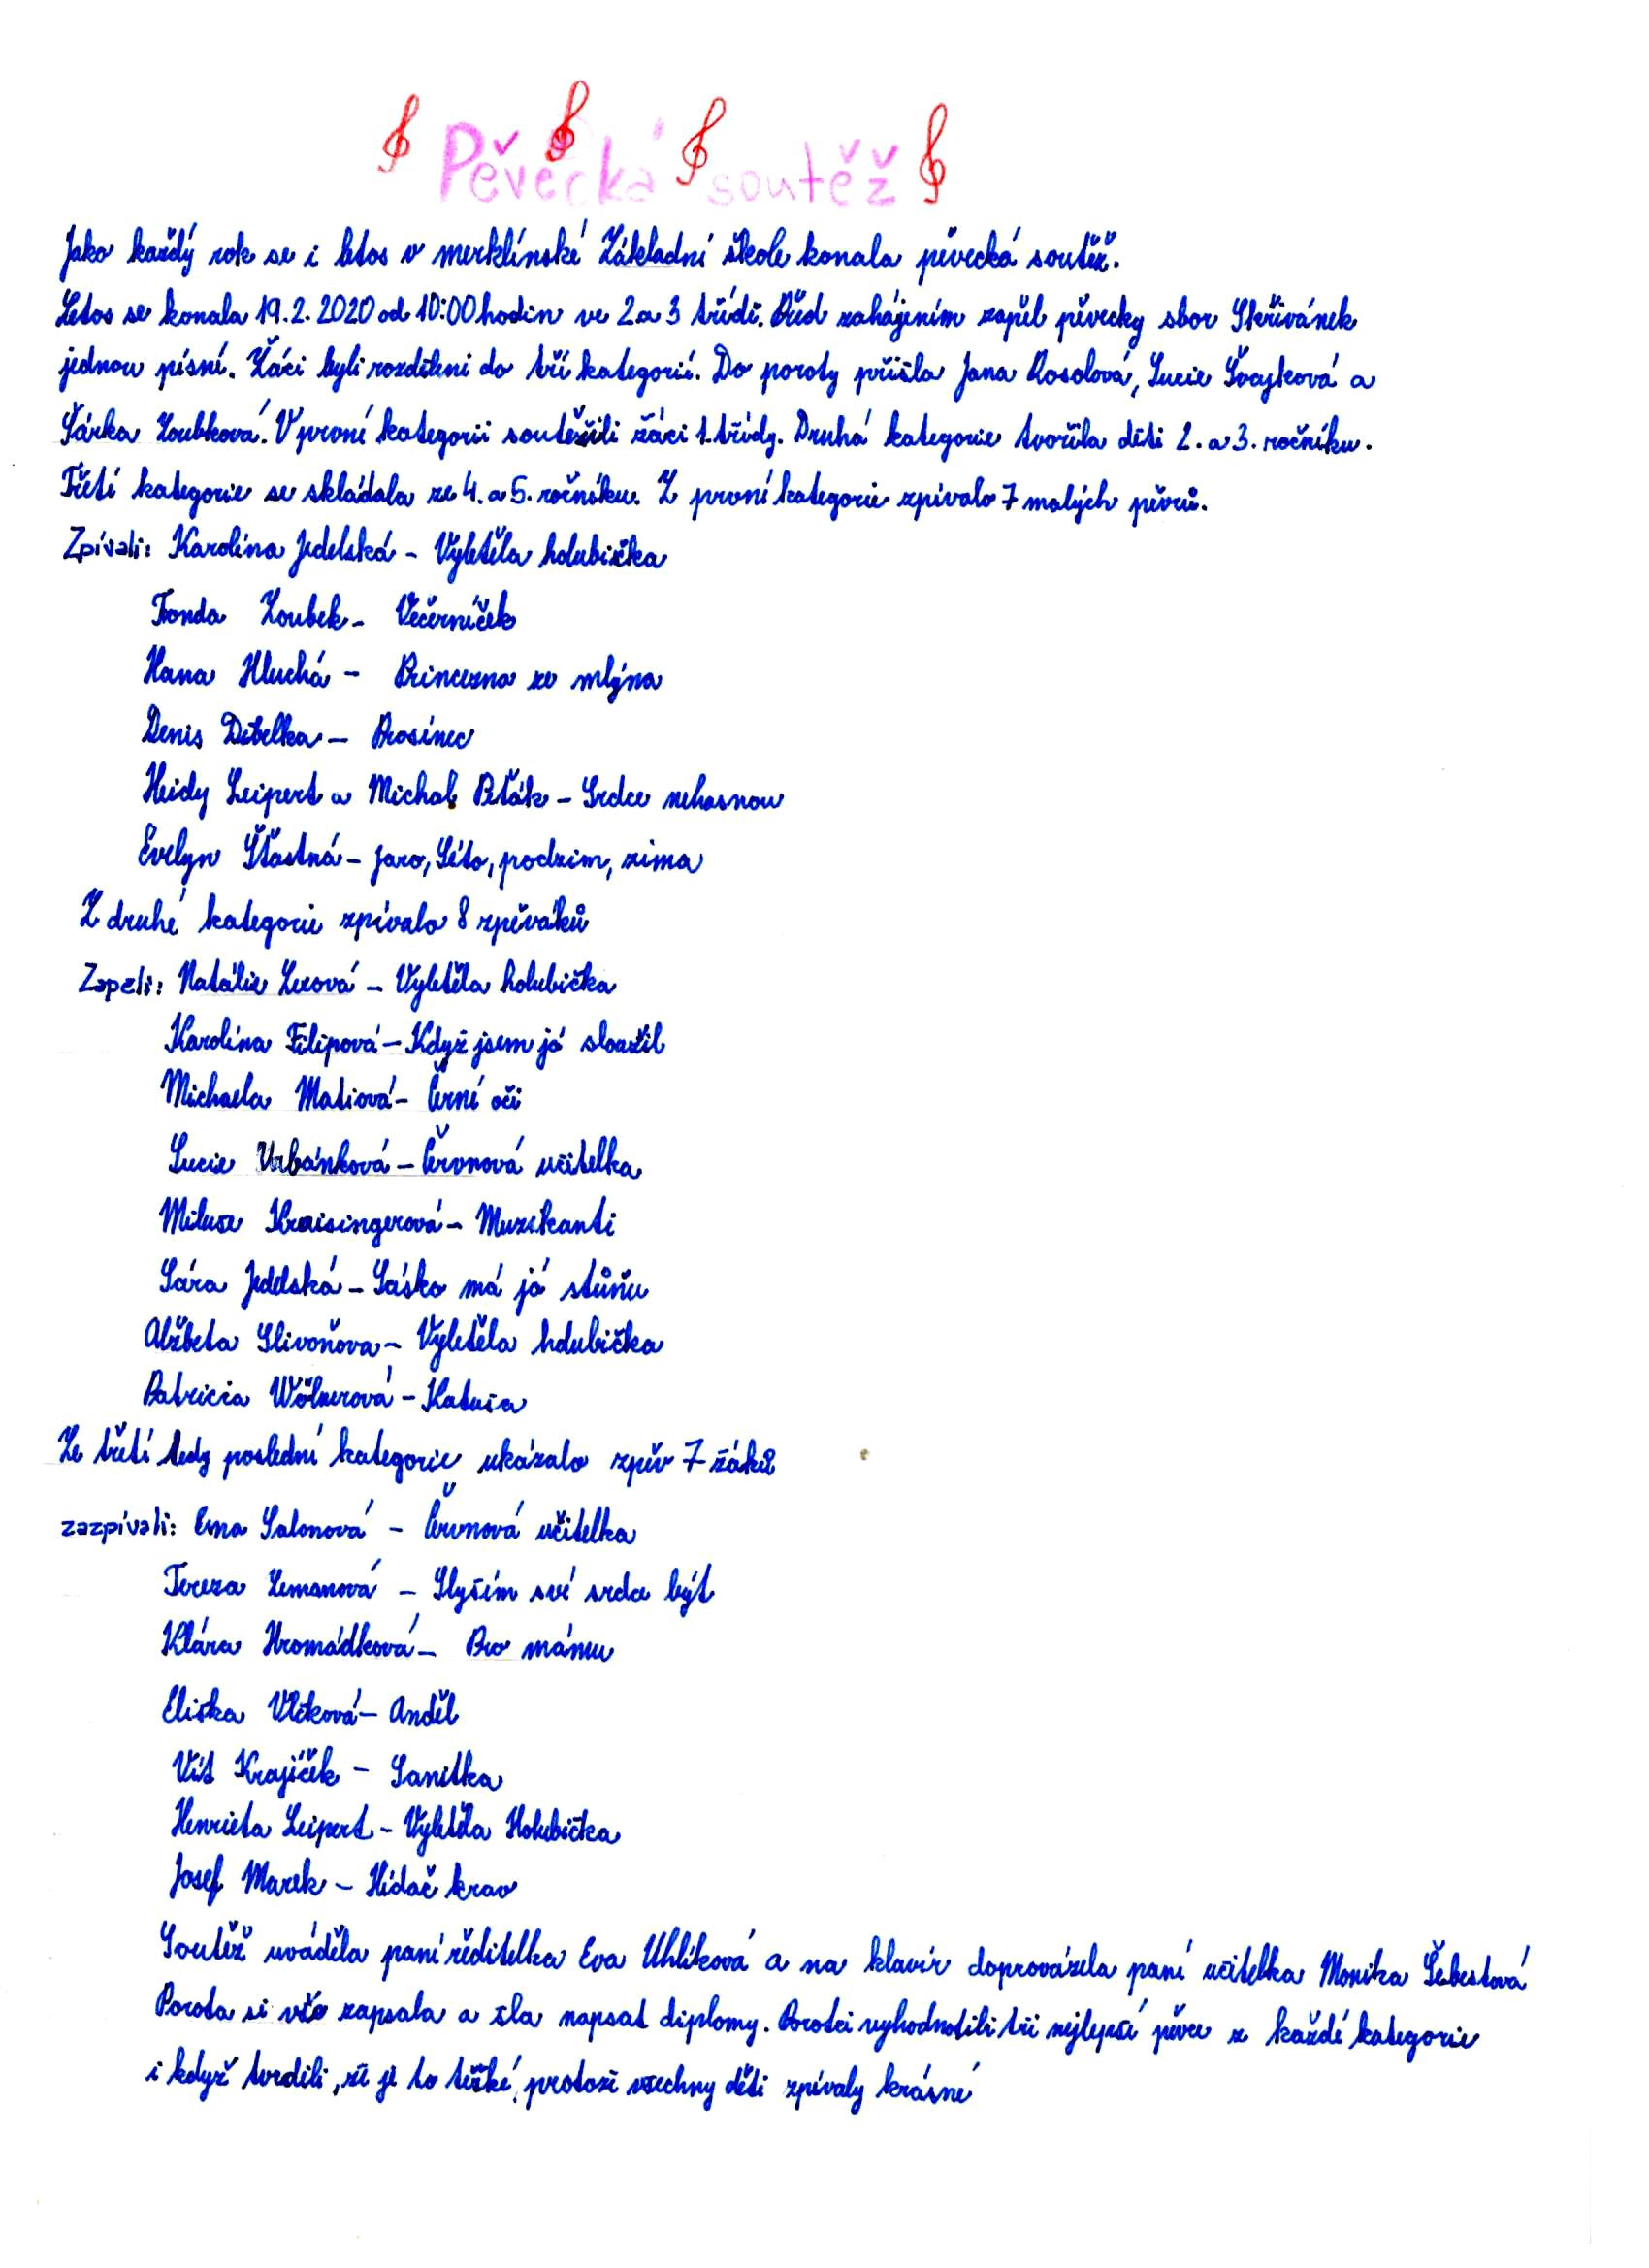 Pěvecká soutěž
Jako každý rok se i letos v merklínské Základní škole konala pěvecká soutěž.
Letos se konala 19.2.2020 od 10:00 hodin ve 2 a 3 třídě. Před zahájením zapěl pěvecky sbor Skřivánek
jednou písní. Žáci byli rozděleni do tří kategorií. Do poroty přišla Jana Rosolová, Lucie Švajková a
Šárka Zoubková. V první kategorii soutěžili žáci 1. třídy. Druhá kategorie tvořila děti 2. a 3. ročníku.
Třetí kategorie se skládala ze 4. a 5. ročníku. Z první kategorie zpívalo 7 malých pěvců.
Zpívali: Karolína Jedelská - Vyletěla holubička
Tonda Zoubek - Večerníček
Hana Hluchá - Princezna ze mlýna
Denis Debelka - Prosinec
Heidy Leipert a Michal Pták - Srdce nehasnou
Evelyn Šťastná - Jaro, Léto, podzim, zima
Z druhé kategorie zpívalo 8 zpěváků
Zapěli: Natálie Lexová - Vyletěla holubička
Karolína Filipová - Když jsem já sloužil
Michaela Matiová - Černé oči
Lucie Urbánková - Červnová učitelka
Miluse Kraisingerová - Muzikanti
Sára Jedelská - Lásko má já stůňu
Alžbeta Slivoňova - Vyletěla holubička
Patricia Wölnerová - Katuša
Ze třetí tedy poslední kategorie ukázalo zpěv 7 žáků
zazpívali: Ema Salonová - Červnová učitelka
Tereza Zemanová - Slyším své srdce být
Klára Hromádková - Pro mámu
Eliška Vlčková - Anděl
Vít Krajíček - Sanitka
Henrieta Leipert - Vyletěla Holubička
Josef Marek - Hídač krav
Soutěž uváděla paní ředitelka Eva Uhlíková a na klavír doprovázela paní učitelka Monika Šebestová
Porota si vše zapsala a šla napsat diplomy. Porotci vyhodnotili tři nejlepší pěvce z každé kategorie
i když tvrdili, že je to těžké, protože všechny děti zpívaly krásně